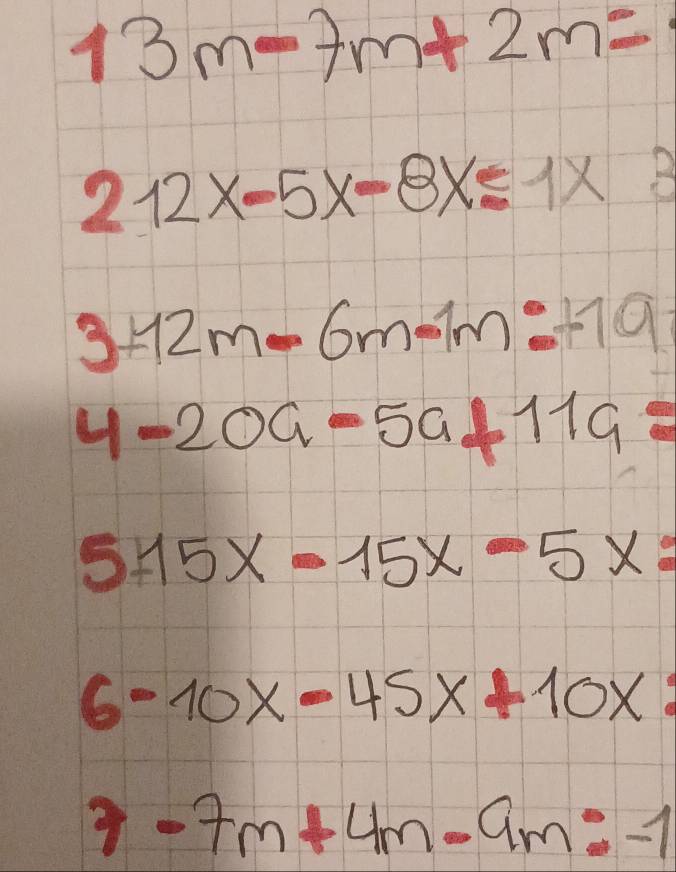 1 3m - 7m + 2m =
2 12x - 5x - 8x = 1x 3
3 +12m - 6m - 1m = +19
4 - 20a - 5a + 11a =
5 +15x - 15x - 5x =
6 - 10x - 45x + 10x =
7 - 7m + 4m - 9m = -1